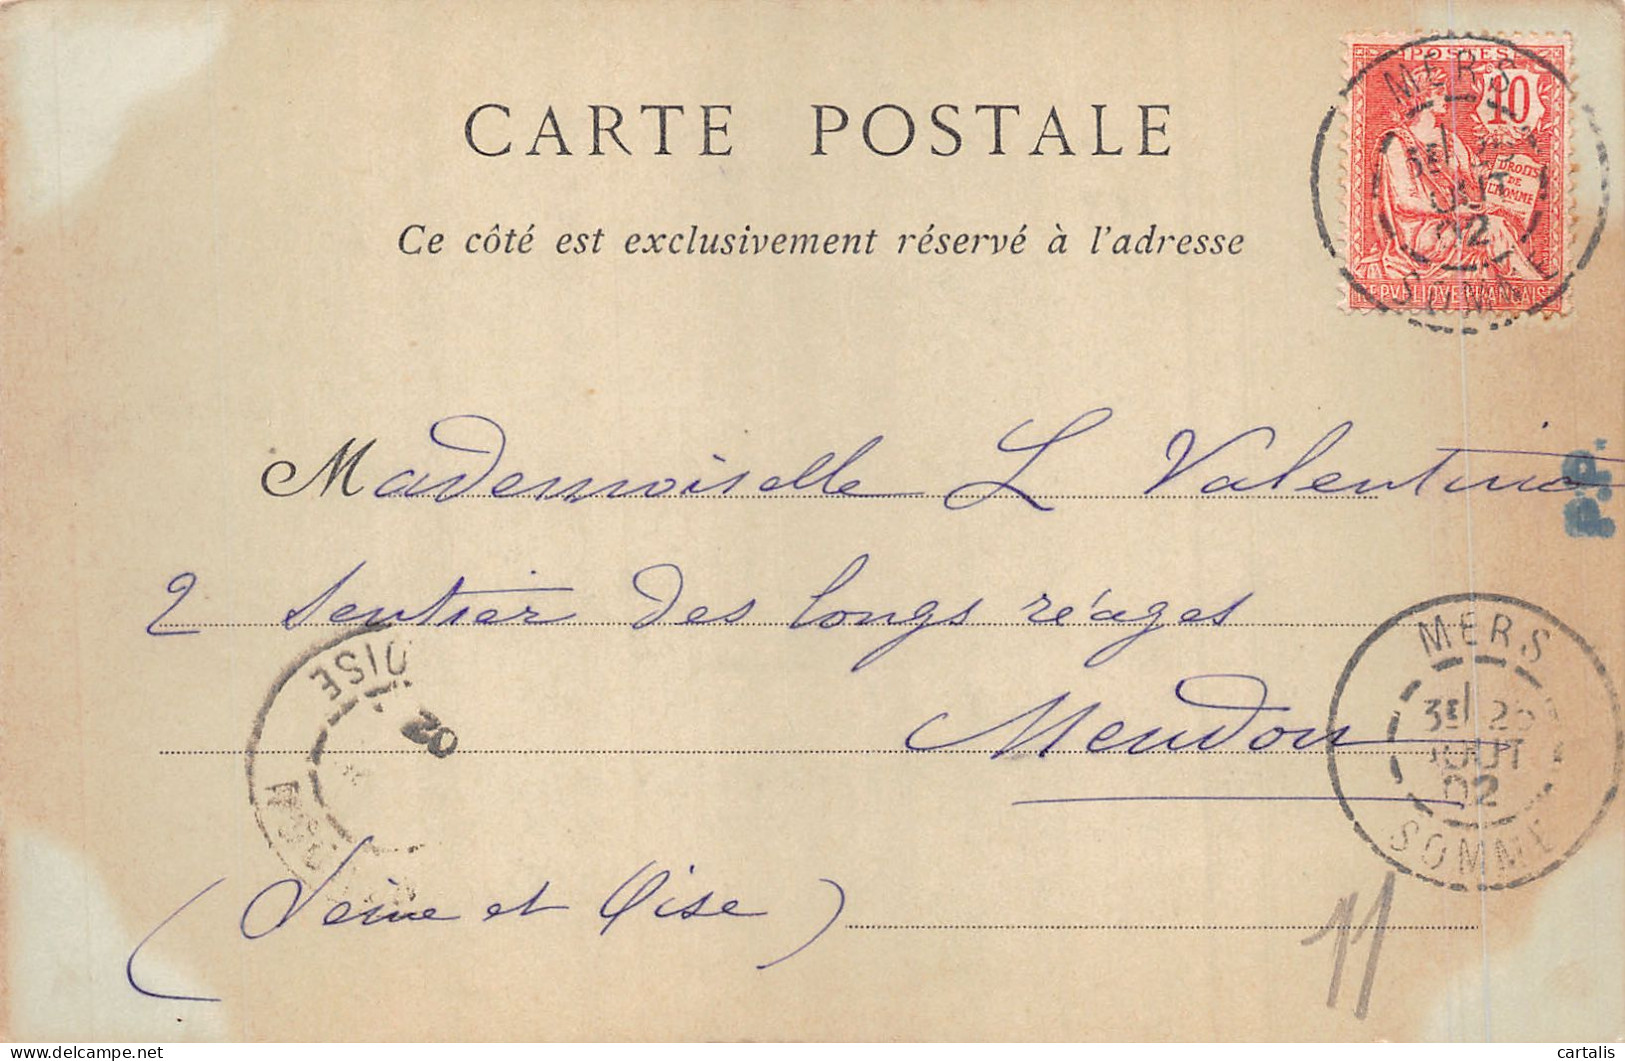 POSTES
10
DROITS
DE
L'HOMME
REPVBLIQVE FRANÇAISE
MERS
3E 25
OUT
02
SOMME
CARTE POSTALE
Ce côté est exclusivement réservé à l'adresse
Mademoiselle L Valentino
P.P.
2 Sentier des longs réages
Meudon
(Seine et Oise)
MERS
3E 25
AOUT
02
SOMME
OISE
02
11
delcampe.net
cartalis